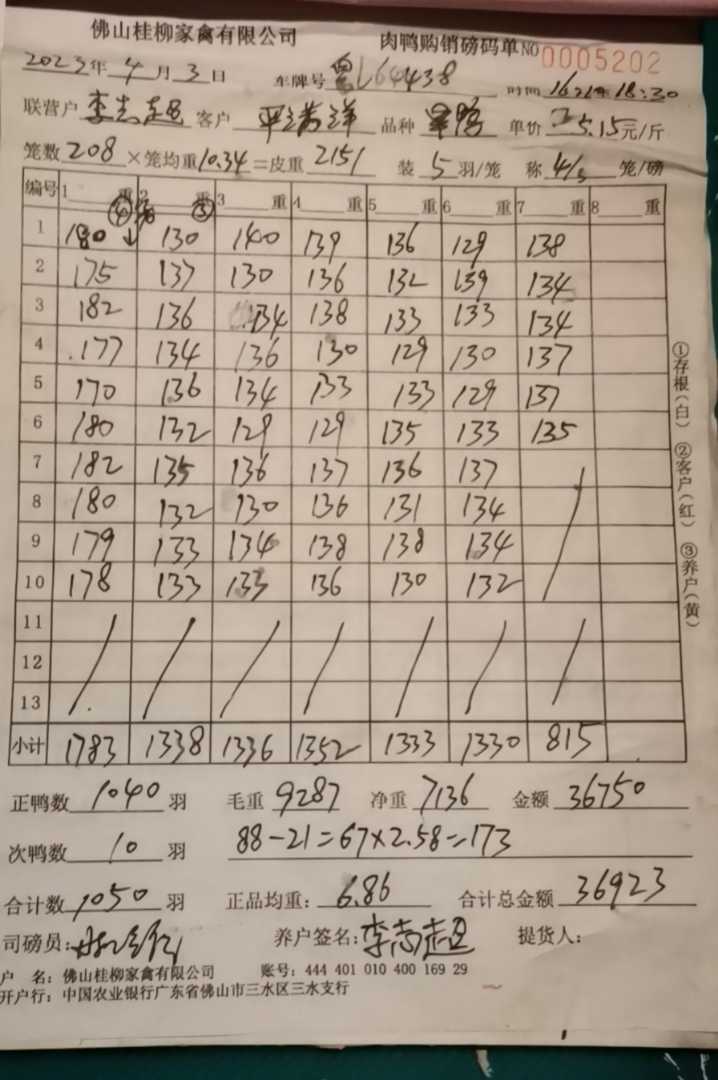 佛山桂柳家禽有限公司 肉鸭购销磅码单NO0005202
2023年4月3日 车牌号粤L64438 时间 18:30
联营户 李志超 客户 品种 单价 5.15元/斤
笼数208×笼均重10.34=皮重2151 装5羽/笼 称4/3笼/磅
编号 1 重 2 重 3 重 4 重 5 重 6 重 7 重 8 重
④ ③
1 180 130 140 139 136 129 138
2 175 137 130 136 132 139 134
3 182 136 134 138 133 133 134
4 177 134 136 130 129 130 137
5 170 136 134 133 133 129 137
6 180 132 129 129 135 133 135
7 182 135 136 137 136 137
8 180 132 130 136 131 134
9 179 133 134 138 138 134
10 178 133 133 136 130 132
11
12
13
小计 1783 1338 1336 1352 1333 1330 815
正鸭数1040羽 毛重9287 净重7136 金额36750
次鸭数10羽 88-21=67×2.58=173
合计数1050羽 正品均重:6.86 合计总金额36923
司磅员: 养户签名:李志超 提货人:
户 名:佛山桂柳家禽有限公司 账号:444 401 010 400 169 29
开户行:中国农业银行广东省佛山市三水区三水支行
①存根(白) ②客户(红) ③养户(黄)